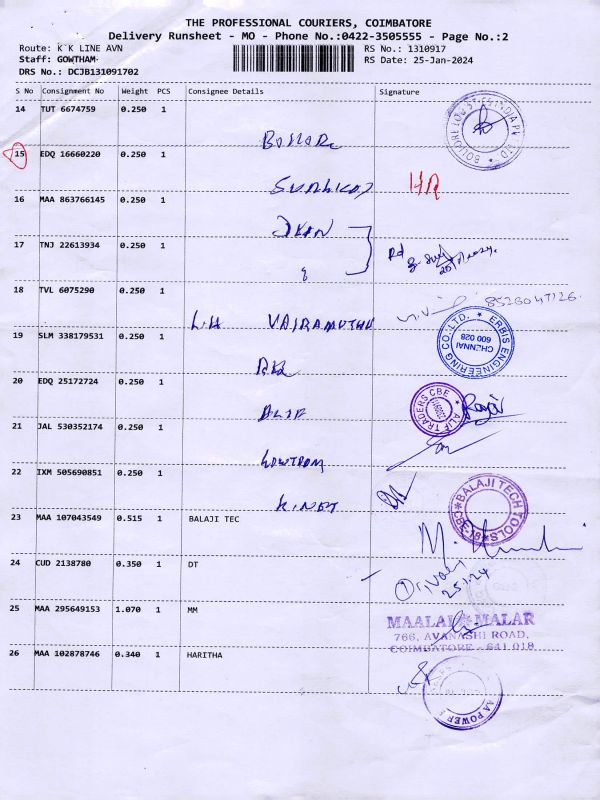 THE PROFESSIONAL COURIERS, COIMBATORE
Delivery Runsheet - MO - Phone No.:0422-3505555 - Page No.:2
Route: K K LINE AVN
RS No.: 1310917
Staff: GOWTHAM
RS Date: 25-Jan-2024
DRS No.: DCJB131091702
S No Consignment No Weight PCS Consignee Details Signature
14 TUT 6674759 0.250 1
15 EDQ 16660220 0.250 1
HR
16 MAA 863766145 0.250 1
17 TNJ 22613934 0.250 1
Rd
18 TVL 6075290 0.250 1
8526047126
L.H VAIRAMUTHU
19 SLM 338179531 0.250 1
ERBIS ENGINEERING CO. LTD. CHENNAI 600 028
20 EDQ 25172724 0.250 1
ALIF
ALIF TRADERS CBE
21 JAL 530352174 0.250 1
GOWTROM
22 IXM 505690851 0.250 1
KINET
23 MAA 107043549 0.515 1 BALAJI TEC
BALAJI TECH TOOLS
24 CUD 2138780 0.350 1 DT
25.1.24
25 MAA 295649153 1.070 1 MM
MAALAI MALAR
766, AVANASHI ROAD,
COIMBATORE - 641 018
26 MAA 102878746 0.340 1 HARITHA
POWER